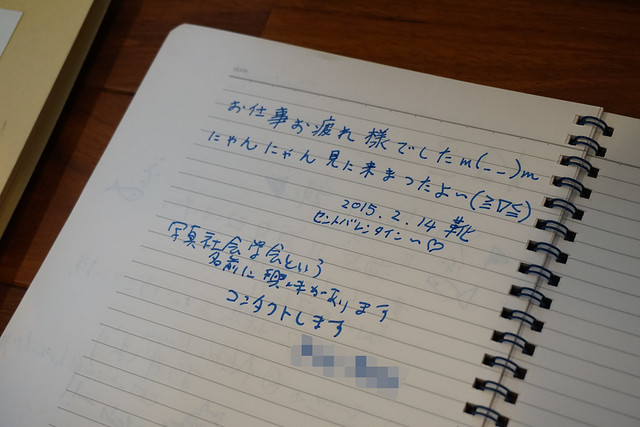 お仕事お疲れ様でしたm(--)m
にゃんにゃん見に来まつたよ〜(≧∇≦)
2015.2.14 靴
セントバレンタイン〜♡
写真社会学会という
名前に興味があります
コンタクトします